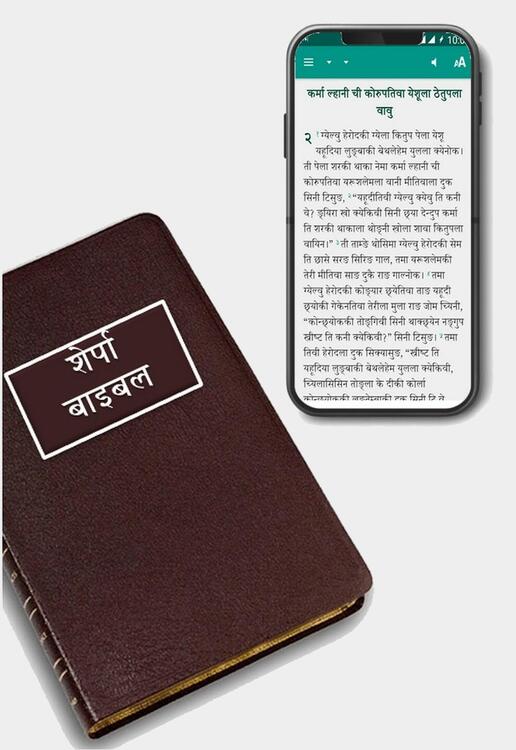 शेर्पा
बाइबल
10:0
AA
कर्मा ल्हानी ची कोरुपतिवा येशूला ठेतुपला
वावु
२ ¹ग्येल्वु हेरोदकी ग्येला कितुप पेला येशू
यहूदिया लुङ्बाकी बेथलेहेम युलला क्येनोक।
ती पेला शरकी थाका नेमा कर्मा ल्हानी ची
कोरुपतिवा यरूशलेमला वानी मीतिवाला दुक
सिनी टिसुङ, ²“यहूदीतिवी ग्येल्वु क्येवु ति कनी
वे? ङ्यिरा खो क्येकिवी सिनी छ्या देन्दुप कर्मा
ति शरकी थाकाला थोङ्नी खोला शावा कितुपला
वायिन।” ³ती ताम्ङे थोसिमा ग्येल्वु हेरोदकी सेम
ति छासे सरङ सिरिङ गाल, तमा यरूशलेमकी
तेरी मीतिवा साङ दुके राङ गाल्नोक। ⁴तमा
ग्येल्वु हेरोदकी कोङ्यार छ्येतिवा ताङ यहूदी
छ्योकी गेकेनतिवा तेरीला मुला राङ जोम च्यिनी,
“कोन्छ्योककी तोङ्गिवी सिनी थाक्छ्येन नङ्गुप
ख्रीष्ट ति कनी क्येकिवी?” सिनी टिसुङ। ⁵तमा
तिवी हेरोदला दुक सिक्यासुङ, “ख्रीष्ट ति
यहूदिया लुङ्बाकी बेथलेहेम युलला क्येकिवी,
च्यिलासिसिन तोङ्ला के दीकी कोर्ला